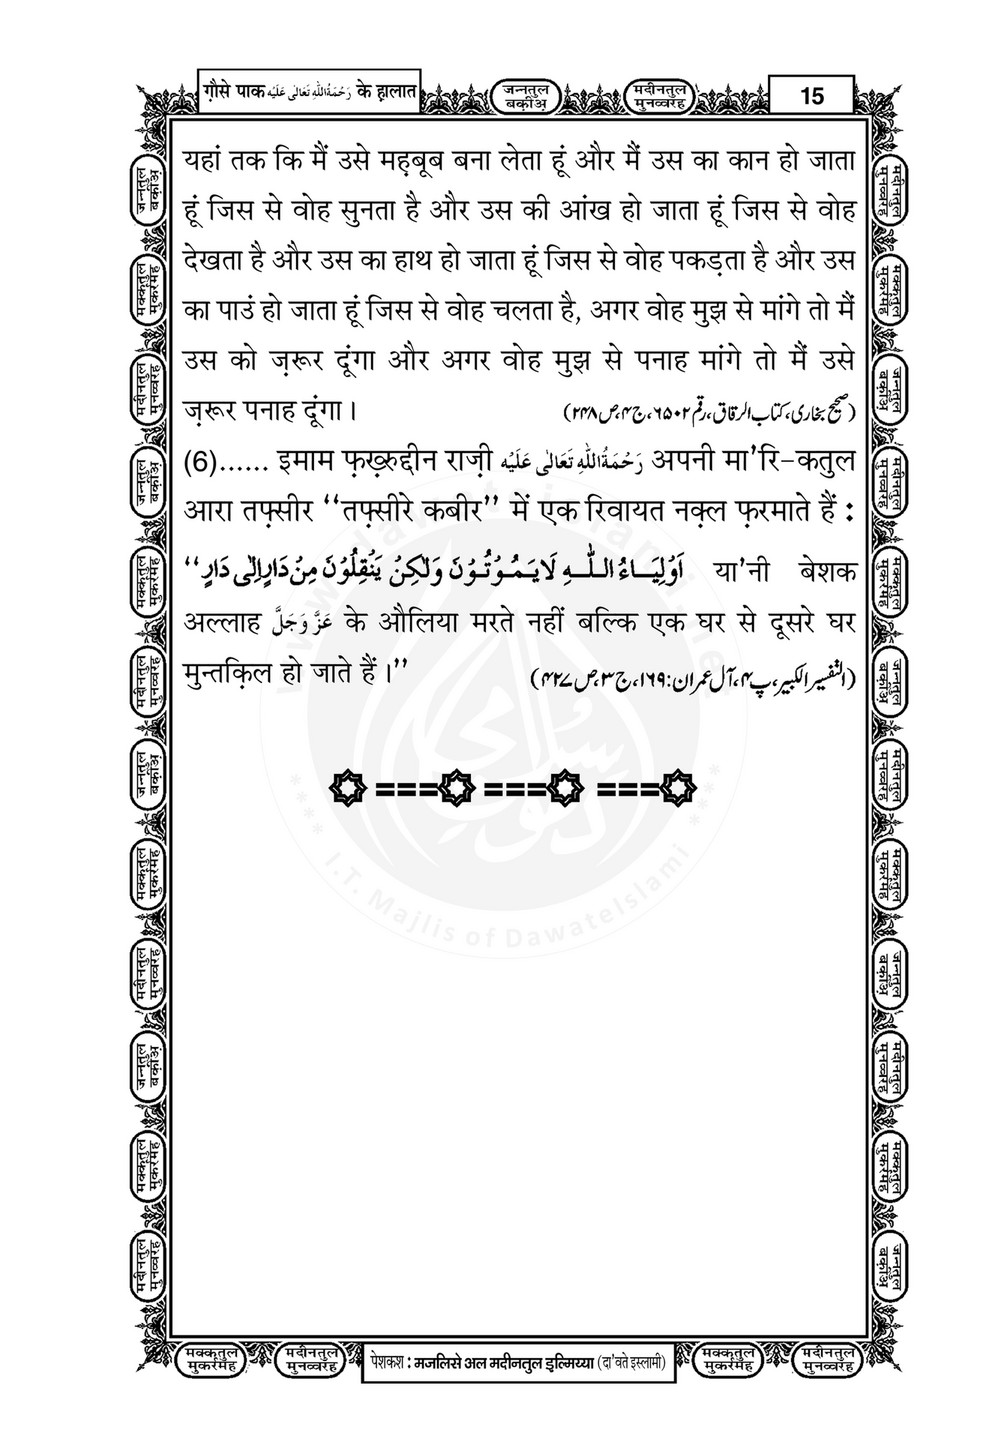 ग़ौसे पाक رَحْمَةُ اللّٰهِ تَعَالٰی عَلَيْه के ह़ालात
जन्नतुल बक़ीअ़
मदीनतुल मुनव्वरह
15
यहां तक कि मैं उसे मह़बूब बना लेता हूं और मैं उस का कान हो जाता
हूं जिस से वोह सुनता है और उस की आंख हो जाता हूं जिस से वोह
देखता है और उस का हाथ हो जाता हूं जिस से वोह पकड़ता है और उस
का पाउं हो जाता हूं जिस से वोह चलता है, अगर वोह मुझ से मांगे तो मैं
उस को ज़रूर दूंगा और अगर वोह मुझ से पनाह मांगे तो मैं उसे
ज़रूर पनाह दूंगा। (صحیح بخاری، کتاب الرقاق، رقم ۶۵۰۲، ج۴، ص۲۴۸)
(6)...... इमाम फ़ख़्रुद्दीन राज़ी رَحْمَةُ اللّٰهِ تَعَالٰی عَلَيْه अपनी मा'रि-कतुल
आरा तफ़्सीर ‘‘तफ़्सीरे कबीर’’ में एक रिवायत नक़्ल फ़रमाते हैं :
‘‘اَوْلِيَاءُ اللّٰهِ لَايَمُوْتُوْنَ وَلٰكِنْ يَنْقِلُوْنَ مِنْ دَارٍ اِلٰى دَارٍ या'नी बेशक
अल्लाह عَزَّ وَجَلَّ के औलिया मरते नहीं बल्कि एक घर से दूसरे घर
मुन्तक़िल हो जाते हैं।’’ (التفسير الكبير، پ۴، آل عمران:۱۶۹، ج۳، ص۴۲۷)
www.dawateislami.net
I.T. Majlis of DawateIslami
मक्कतुल मुकर्रमह
मदीनतुल मुनव्वरह
पेशकश : मजलिसे अल मदीनतुल इल्मिय्या (दा'वते इस्लामी)
मक्कतुल मुकर्रमह
मदीनतुल मुनव्वरह